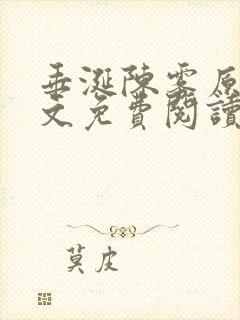 垂涎陳雾原
文免費閱讀
莫皮